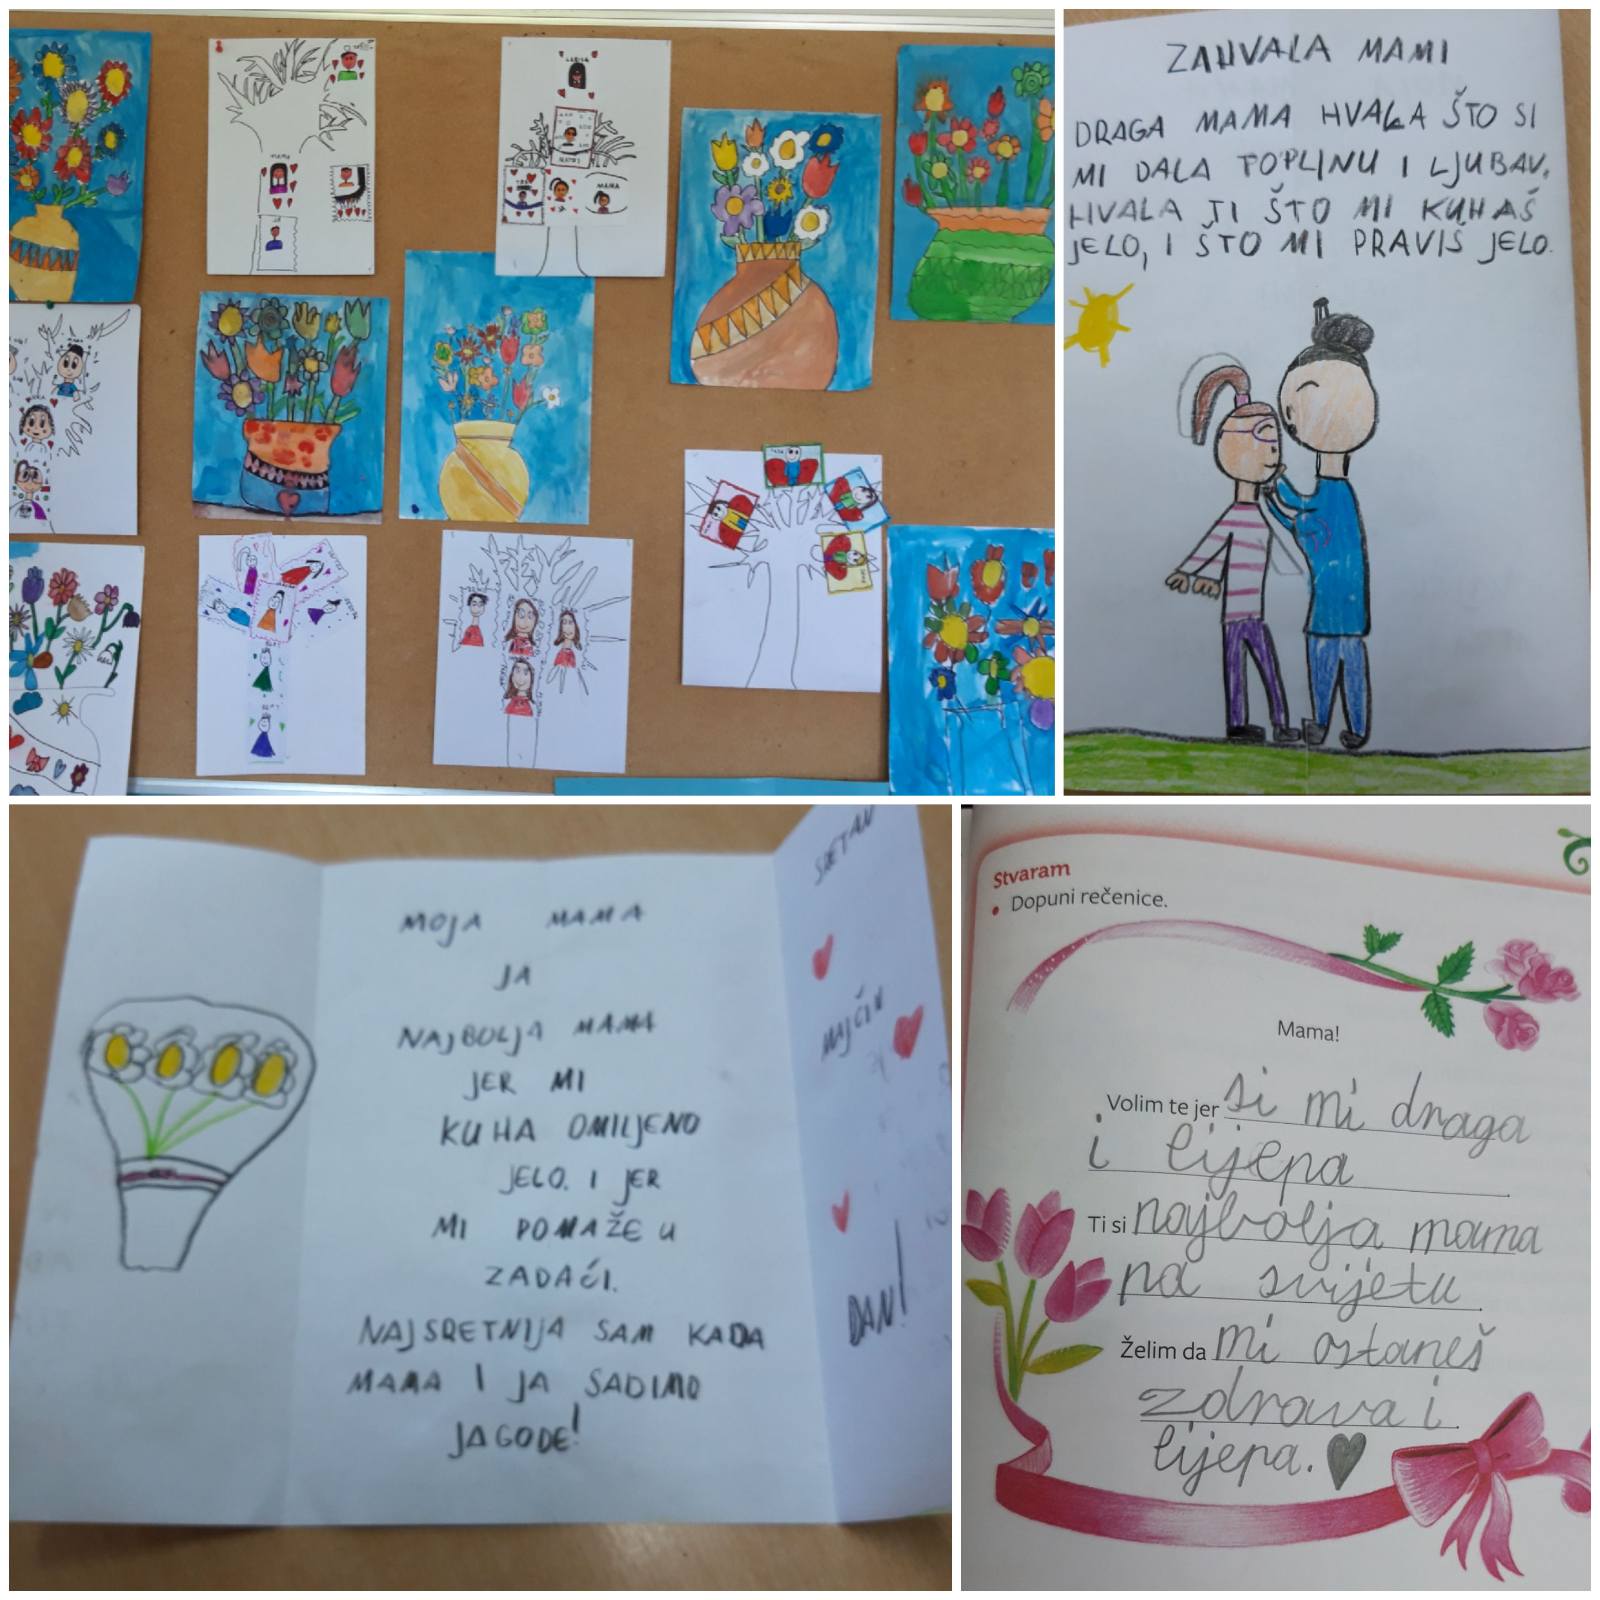 MAMA
MAMA
ZAHVALA MAMI
DRAGA MAMA HVALA ŠTO SI
MI DALA TOPLINU I LJUBAV.
HVALA TI ŠTO MI KUHAŠ
JELO, I ŠTO MI PRAVIŠ JELO.
MOJA MAMA
JA
NAJBOLJA MAMA
JER MI
KUHA OMILJENO
JELO. I JER
MI POMAŽE U
ZADAĆI.
NAJSRETNIJA SAM KADA
MAMA I JA SADIMO
JAGODE!
SRETAN
MAJČIN
DAN!
Stvaram
Dopuni rečenice.
Mama!
Volim te jer si mi draga
i lijepa
Ti si najbolja mama
na svijetu.
Želim da mi ostaneš
zdrava i
lijepa.